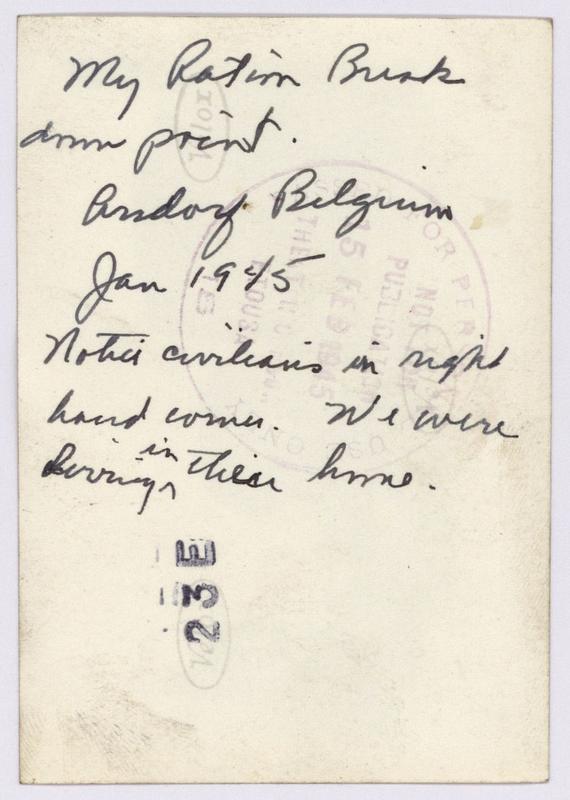 My Ration Break
down point.
Arsdorf Belgium
Jan 1945
Notice civilians in right
hand corner. We were
living in their home.
FOR PER
NOT
PUBLICATION
15 FEB 1945
IN THE E.T.O.
ETOUSA
US
USE ON
23E